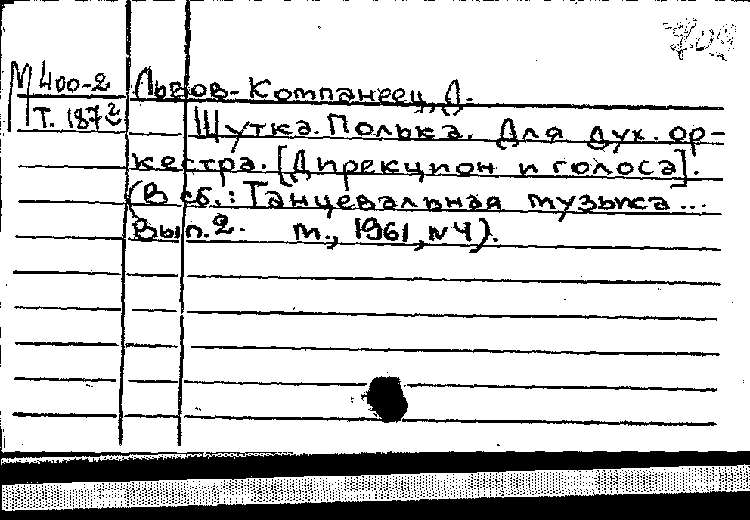 М 400-2
Т. 187
Львов-Компанеец, Д.
Шутка. Полька. Для дух. ор-
кестра. [Дирекцион и голоса].
(В сб.: Танцевальная музыка...
Вып. 2. М., 1961, №4).